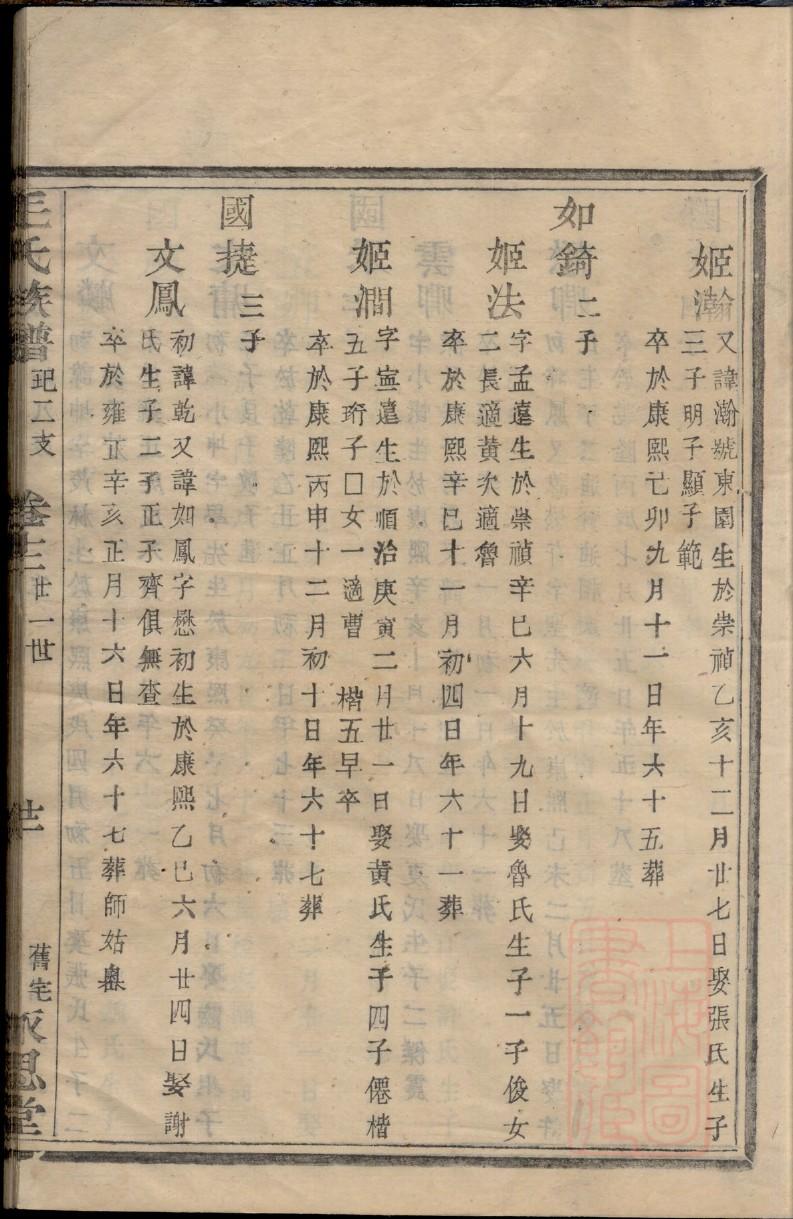 姬瀚
又諱瀚號東園生於崇禎乙亥十二月廿七日娶張氏生子
三子明子顯子範
卒於康熙己卯九月十一日年六十五葬
如錡二子
姬法
字孟遠生於崇禎辛巳六月十九日娶魯氏生子一子俊女
二長適黃次適魯
卒於康熙辛巳十一月初四日年六十一葬
姬澗
字寧遠生於順治庚寅二月廿一日娶黃氏生子四子僊楷
五子珩子□女一適曹 楷五早卒
卒於康熙丙申十二月初十日年六十七葬
國捷三子
文鳳
初諱乾又諱如鳳字懋初生於康熙乙巳六月廿四日娶謝
氏生子二子正子齊俱無查
卒於雍正辛亥正月十六日年六十七葬師姑
王氏族譜 玘二支 卷十三 廿一世 舊宅
上海圖書館藏